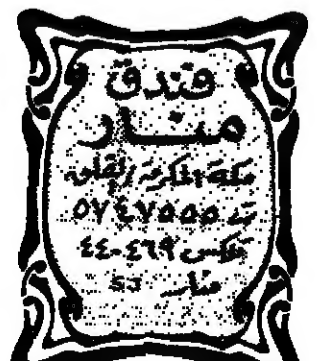 فندق
منار
مكة المكرمة
ت: ٥٧٤٧٥٥٥
تلكس ٤٤٠٤٦٩
منار SJ